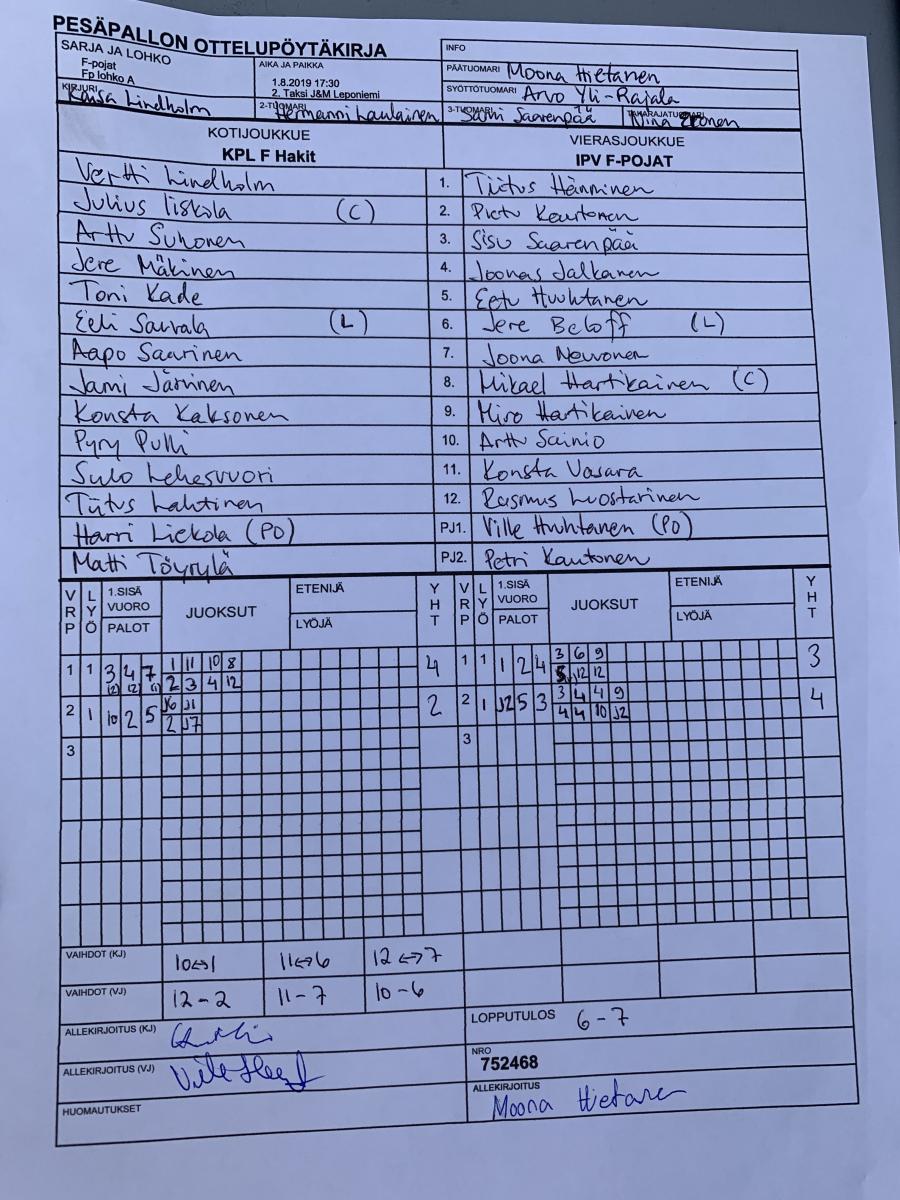 PESÄPALLON OTTELUPÖYTÄKIRJA
SARJA JA LOHKO
F-pojat
Fp lohko A
AIKA JA PAIKKA
1.8.2019 17:30
2. Taksi J&M Leponiemi
INFO
PÄÄTUOMARI Moona Hietanen
SYÖTTÖTUOMARI Arvo Yli-Rajala
KIRJURI Kaisa Lindholm
2-TUOMARI Hermanni Laulainen
3-TUOMARI Sami Saarenpää
TAKARAJATUOMARI Nina Eronen
KOTIJOUKKUE
KPL F Hakit
VIERASJOUKKUE
IPV F-POJAT
Vertti Lindholm 1. Tiitus Hänninen
Julius Iiskola (C) 2. Pietu Kautonen
Arttu Suhonen 3. Sisu Saarenpää
Jere Mäkinen 4. Joonas Jalkanen
Toni Kade 5. Eetu Huuhtanen
Eeli Saurala (L) 6. Jere Beloff (L)
Aapo Saarinen 7. Joona Neuvonen
Jami Järvinen 8. Mikael Hartikainen (C)
Konsta Kaksonen 9. Miro Hartikainen
Pyry Pulli 10. Arttu Sainio
Sulo Lehesvuori 11. Konsta Vasara
Tiitus Lahtinen 12. Rasmus Luostarinen
Harri Liekola (PO) PJ1. Ville Huhtanen (PO)
Matti Töyrylä PJ2. Petri Kautonen
VRP LYÖ 1.SISÄ VUORO PALOT JUOKSUT ETENIJÄ LYÖJÄ YHT VRP LYÖ 1.SISÄ VUORO PALOT JUOKSUT ETENIJÄ LYÖJÄ YHT
1 1 3 4 7 1 11 10 8 4 1 1 1 2 4 3 6 9 3
(12) (12) (1) 2 3 4 12 12 12
2 1 10 2 5 J6 J1 2 2 1 J2 5 3 3 4 4 9 4
2 J7 4 4 10 J2
3 3
VAIHDOT (KJ) 10↔1 11↔6 12↔7
VAIHDOT (VJ) 12-2 11-7 10-6
ALLEKIRJOITUS (KJ)
LOPPUTULOS 6-7
ALLEKIRJOITUS (VJ)
NRO
752468
HUOMAUTUKSET
ALLEKIRJOITUS
Moona Hietanen